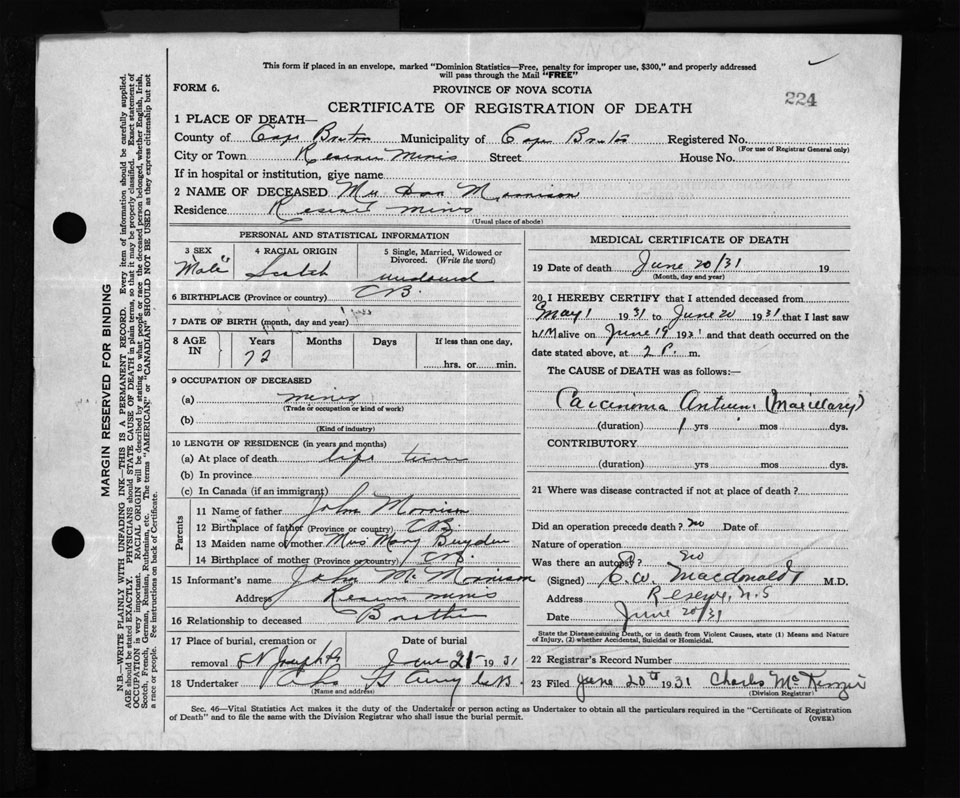 This form if placed in an envelope, marked "Dominion Statistics—Free, penalty for improper use, $300," and properly addressed
will pass through the Mail "FREE"
FORM 6.
PROVINCE OF NOVA SCOTIA
224
CERTIFICATE OF REGISTRATION OF DEATH
1 PLACE OF DEATH—
County of Cape Breton Municipality of Cape Breton Registered No.
(For use of Registrar General only)
City or Town Reserve Mines Street House No.
If in hospital or institution, give name
2 NAME OF DECEASED Mr Dan Morrison
Residence Reserve Mines
(Usual place of abode)
PERSONAL AND STATISTICAL INFORMATION
3 SEX 4 RACIAL ORIGIN 5 Single, Married, Widowed or Divorced. (Write the word)
Male Scotch widowed
6 BIRTHPLACE (Province or country) CB.
7 DATE OF BIRTH (month, day and year)
8 AGE IN Years Months Days If less than one day,
72 hrs. or min.
9 OCCUPATION OF DECEASED
(a) miner
(Trade or occupation or kind of work)
(b)
(Kind of industry)
10 LENGTH OF RESIDENCE (in years and months)
(a) At place of death life time
(b) In province
(c) In Canada (if an immigrant)
Parents
11 Name of father John Morrison
12 Birthplace of father (Province or country) CB
13 Maiden name of mother Mrs Mary
14 Birthplace of mother (Province or country) CB.
15 Informant's name John M. Morrison
Address Reserve Mines
16 Relationship to deceased Brother
17 Place of burial, cremation or removal Date of burial
St Josephs June 21 1931
18 Undertaker
(Name and address)
MEDICAL CERTIFICATE OF DEATH
19 Date of death June 20/31 19
(Month, day and year)
20 I HEREBY CERTIFY that I attended deceased from
May 1 1931 to June 20 1931 that I last saw
h im alive on June 19 1931 and that death occurred on the
date stated above, at 2 P. m.
The CAUSE of DEATH was as follows:—
Carcinoma Antrum (Maxillary)
(duration) 1 yrs mos dys.
CONTRIBUTORY
(duration) yrs mos dys.
21 Where was disease contracted if not at place of death?
Did an operation precede death? no Date of
Nature of operation
Was there an autopsy? no
(Signed) C. W. Macdonald M.D.
Address Reserve, N.S
Date June 20/31
State the Disease causing Death, or in death from Violent Causes, state (1) Means and Nature of Injury, (2) whether Accidental, Suicidal or Homicidal.
22 Registrar's Record Number
23 Filed June 20th 1931 Charles McKinzie
(Division Registrar)
Sec. 46—Vital Statistics Act makes it the duty of the Undertaker or person acting as Undertaker to obtain all the particulars required in the "Certificate of Registration
of Death" and to file the same with the Division Registrar who shall issue the burial permit.
(OVER)
MARGIN RESERVED FOR BINDING
N.B.—WRITE PLAINLY WITH UNFADING INK—THIS IS A PERMANENT RECORD. Every item of information should be carefully supplied.
AGE should be stated EXACTLY. PHYSICIANS should STATE CAUSE OF DEATH in plain terms, so that it may be properly classified. Exact statement of
OCCUPATION is very important. RACIAL ORIGIN will be described by stating to what people or race the deceased person belonged, whether English, Irish,
Scotch, French, German, Russian, Ruthenian, etc. The terms "AMERICAN" or "CANADIAN" SHOULD NOT BE USED as they express citizenship but not
a race or people. See instructions on back of Certificate.